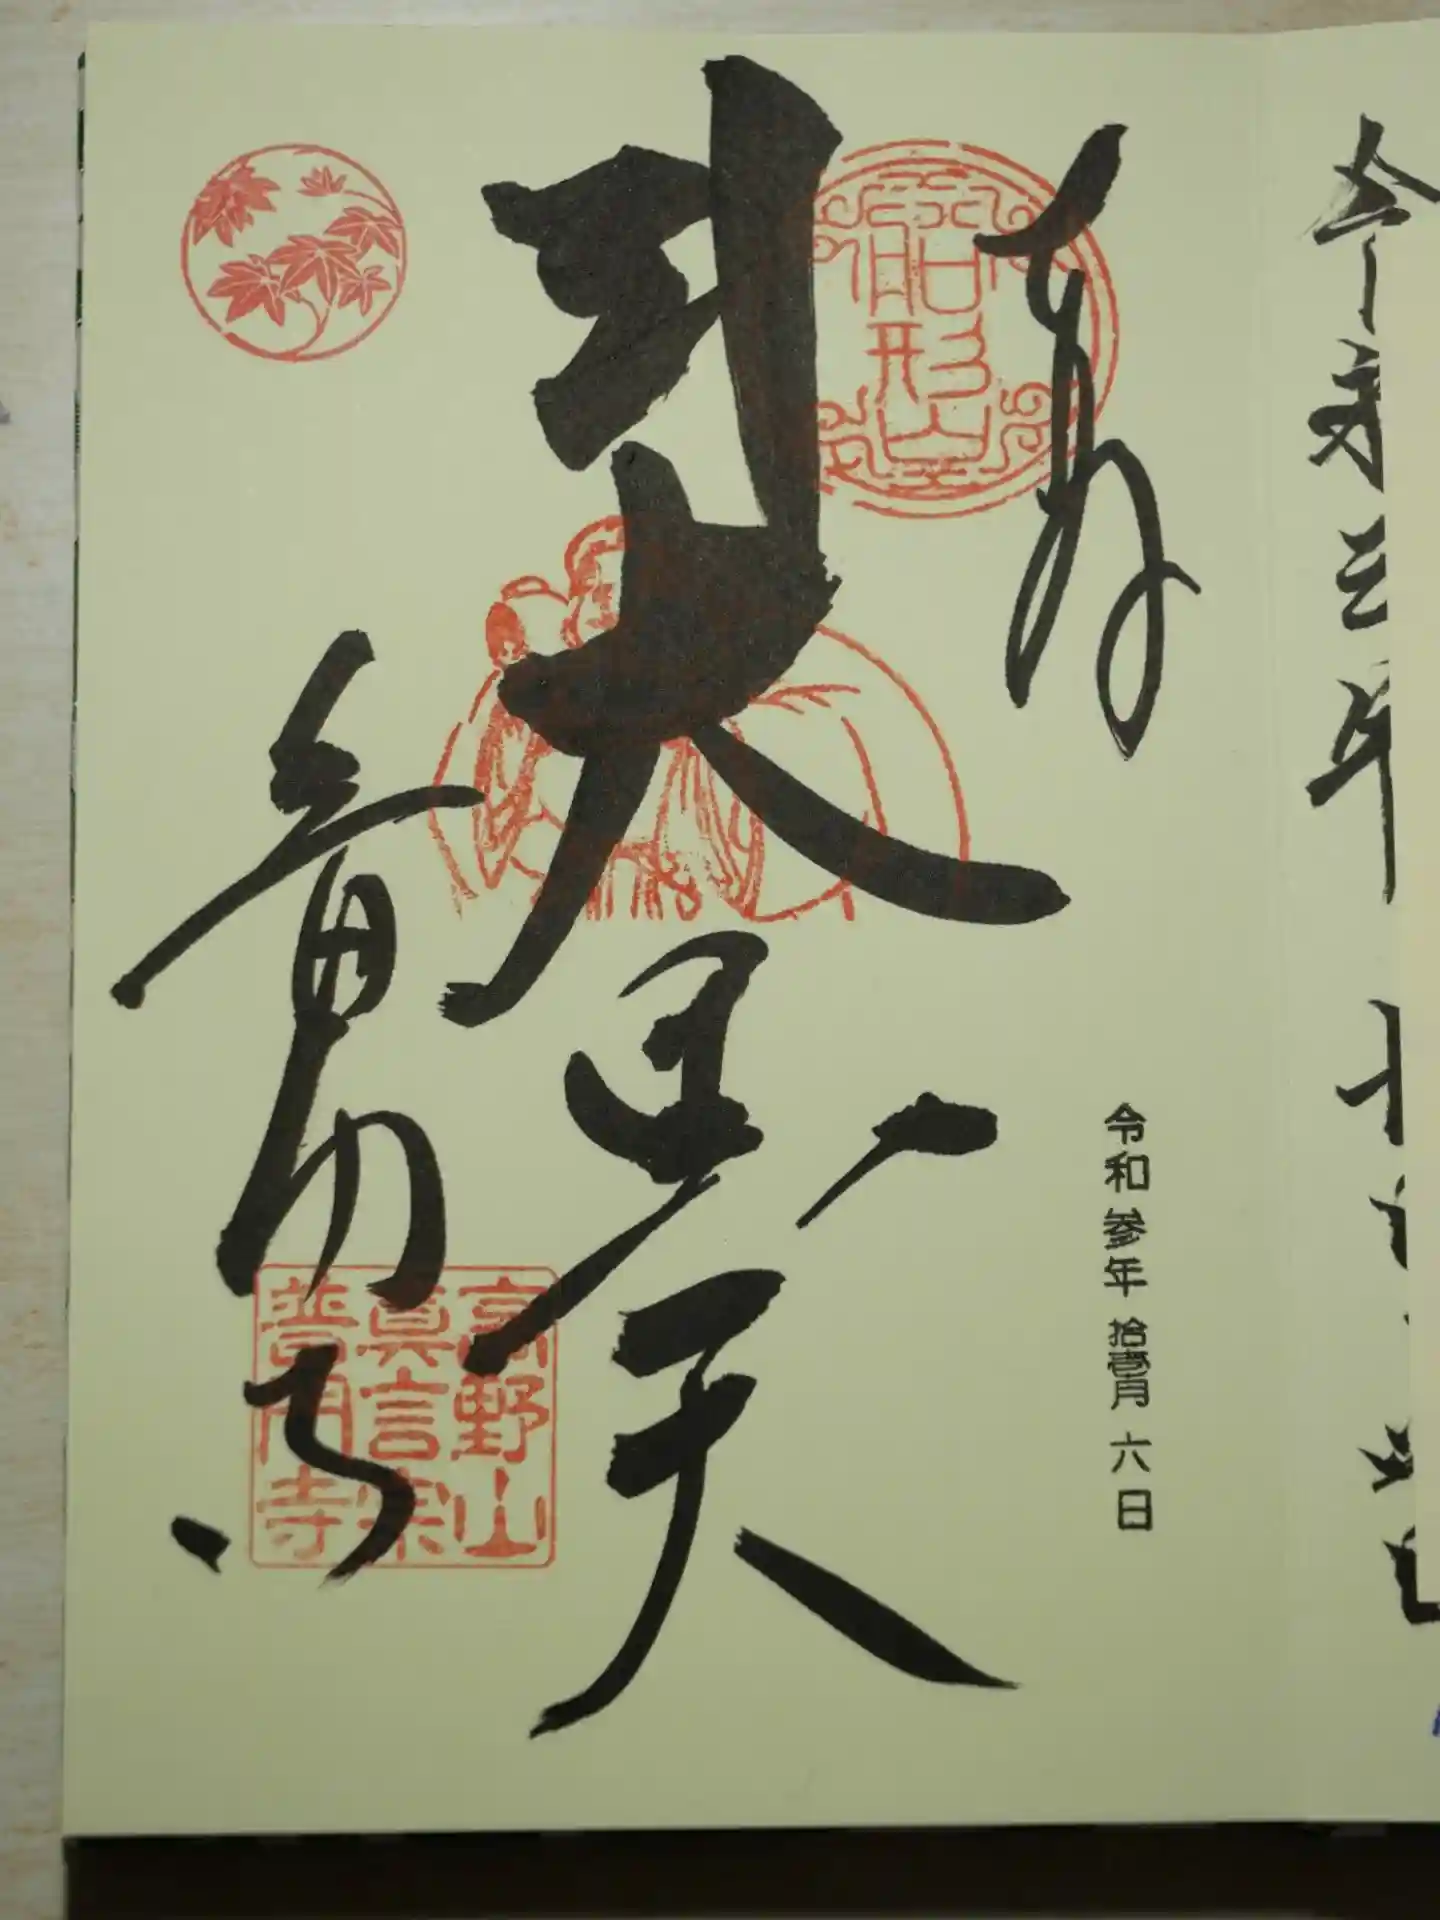 令和三年
奉拝
船形山
令和参年 拾壹月 六日
引大黒天
普門寺
高野山
真言宗
普門寺